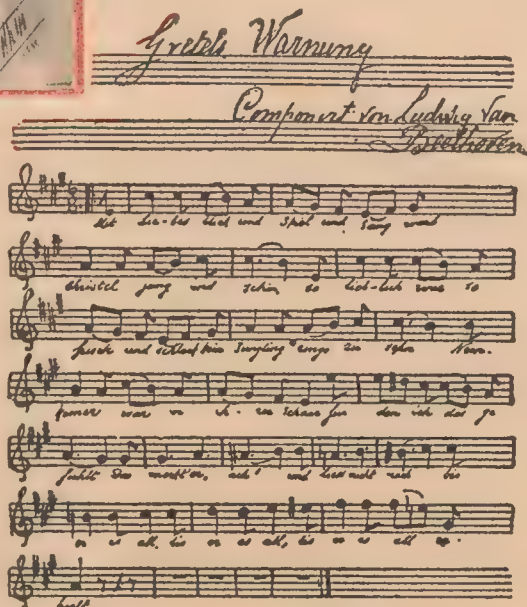 Gretels Warnung
Componirt von Ludwig van
Beethoven.
Mit Lie-bes Lied und Spiel und Sang war
Christel jung und schön so lieb-lich war so
frisch und schlank kein Jüngling rings zu sehn Nein.
keiner war in ih-rer Schaar für den ich das ge
fühlt Das merkt er, ach! und liess nicht nach bis
er es all, bis er es all, bis er es all er-
hielt